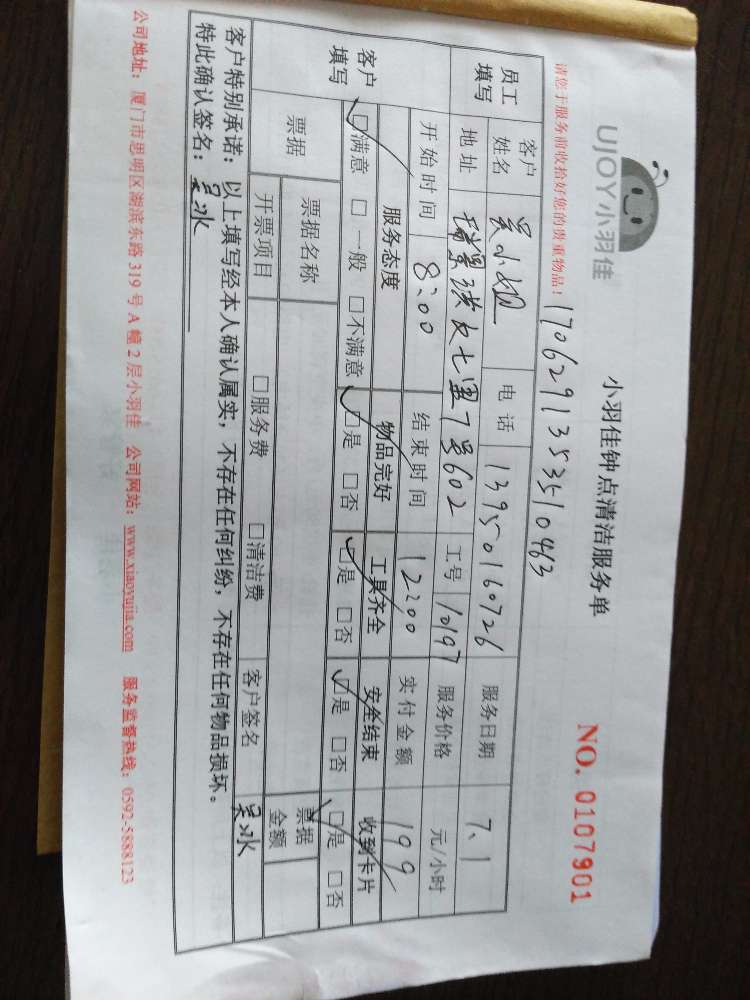 UJOY小羽佳
小羽佳钟点清洁服务单
NO. 0107901
请您于服务前收拾好您的贵重物品！
1706291353510463
员工填写 客户姓名 吴小姐 电话 13950160726 服务日期 7.1
地址 七里7号602 工号 10197 服务价格 元/小时
开始时间 8:00 结束时间 12:00 实付金额 199
客户填写 服务态度 物品完好 工具齐全 安全结束 收到卡片
☑满意 □一般 □不满意 ☑是 □否 ☑是 □否 ☑是 □否 ☑是 □否
票据 票据名称 票据金额
开票项目 □服务费 □清洁费 客户签名 吴冰
客户特别承诺：以上填写经本人确认属实，不存在任何纠纷，不存在任何物品损坏。
特此确认签名：吴冰
公司地址：厦门市思明区湖滨东路 319 号 A 幢 2 层小羽佳 公司网站：www.xiaoyujia.com 服务监督热线：0592-5888123